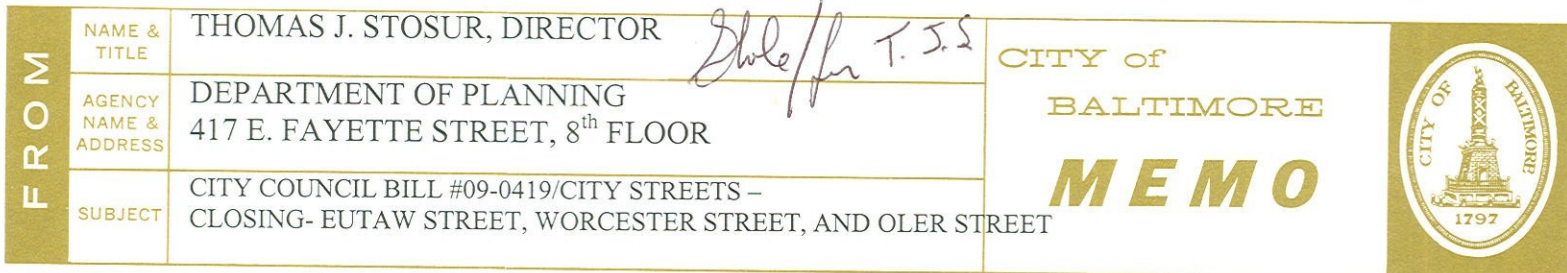 FROM
NAME &
TITLE
THOMAS J. STOSUR, DIRECTOR
T. J. S
AGENCY
NAME &
ADDRESS
DEPARTMENT OF PLANNING
417 E. FAYETTE STREET, 8th FLOOR
SUBJECT
CITY COUNCIL BILL #09-0419/CITY STREETS –
CLOSING- EUTAW STREET, WORCESTER STREET, AND OLER STREET
CITY of
BALTIMORE
MEMO
CITY OF BALTIMORE
1797